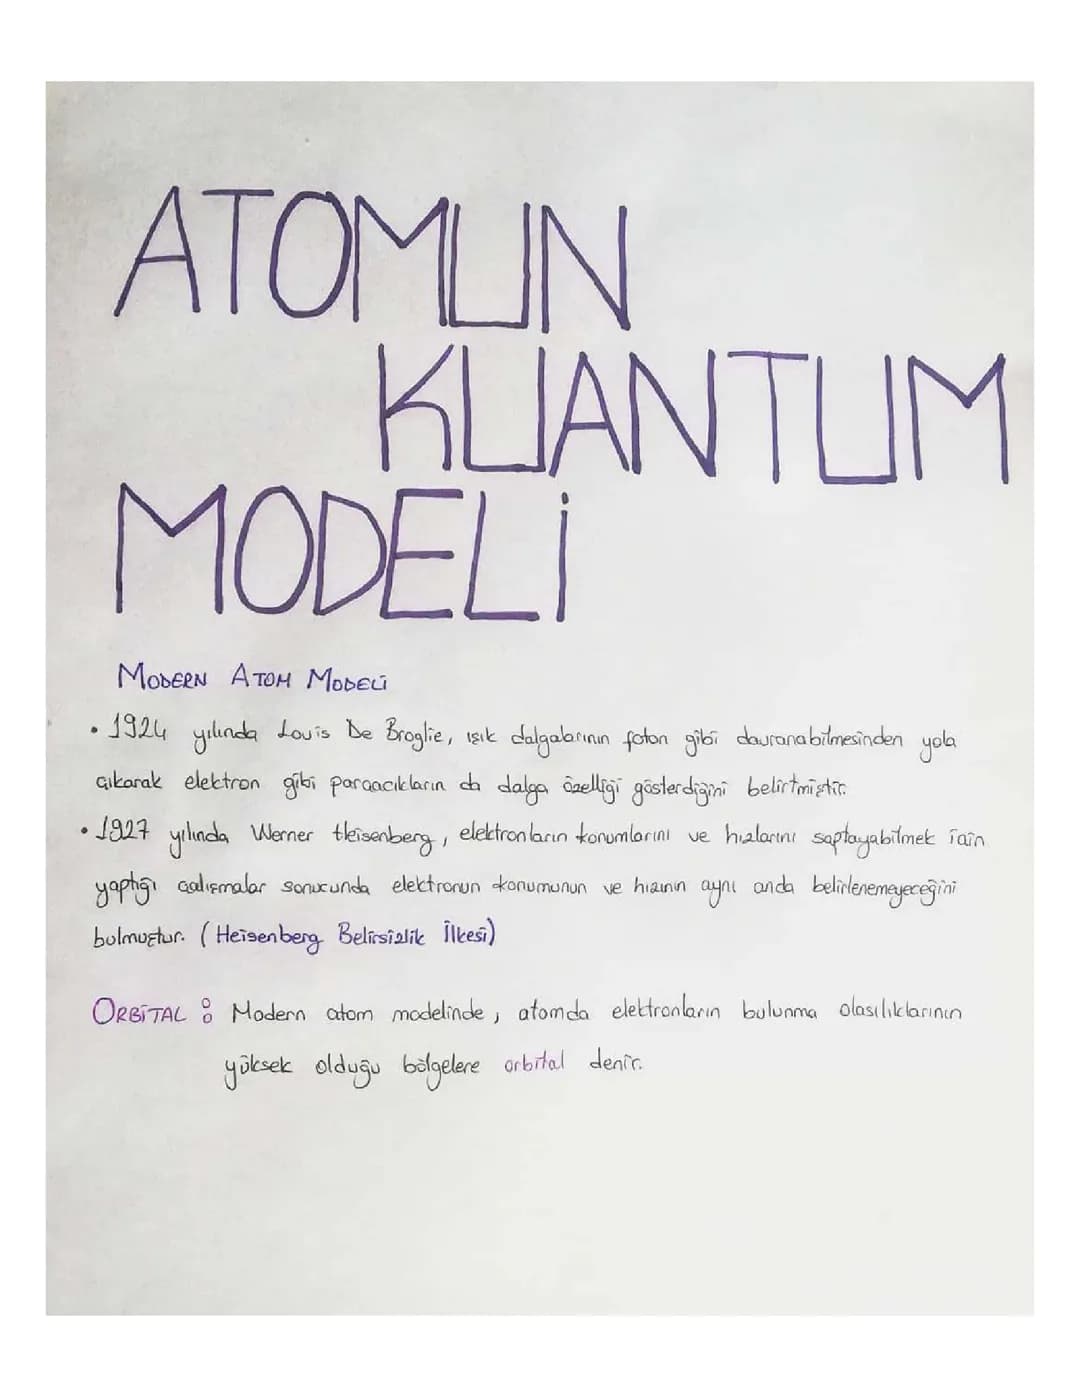 ATOMUN
KUANTUM
MODELİ
MODERN ATOM MODELİ
• 1924 yılında Louis De Broglie, ışık dalgalarının foton gibi davranabilmesinden yola
çıkarak elektron gibi parçacıkların da dalga özelliği gösterdiğini belirtmiştir.
• 1927 yılında Werner Heisenberg, elektronların konumlarını ve hızlarını saptayabilmek için
yaptığı çalışmalar sonucunda elektronun konumunun ve hızının aynı anda belirlenemeyeceğini
bulmuştur. (Heisenberg Belirsizlik İlkesi)
ORBİTAL : Modern atom modelinde, atomda elektronların bulunma olasılıklarının
yüksek olduğu bölgelere orbital denir.